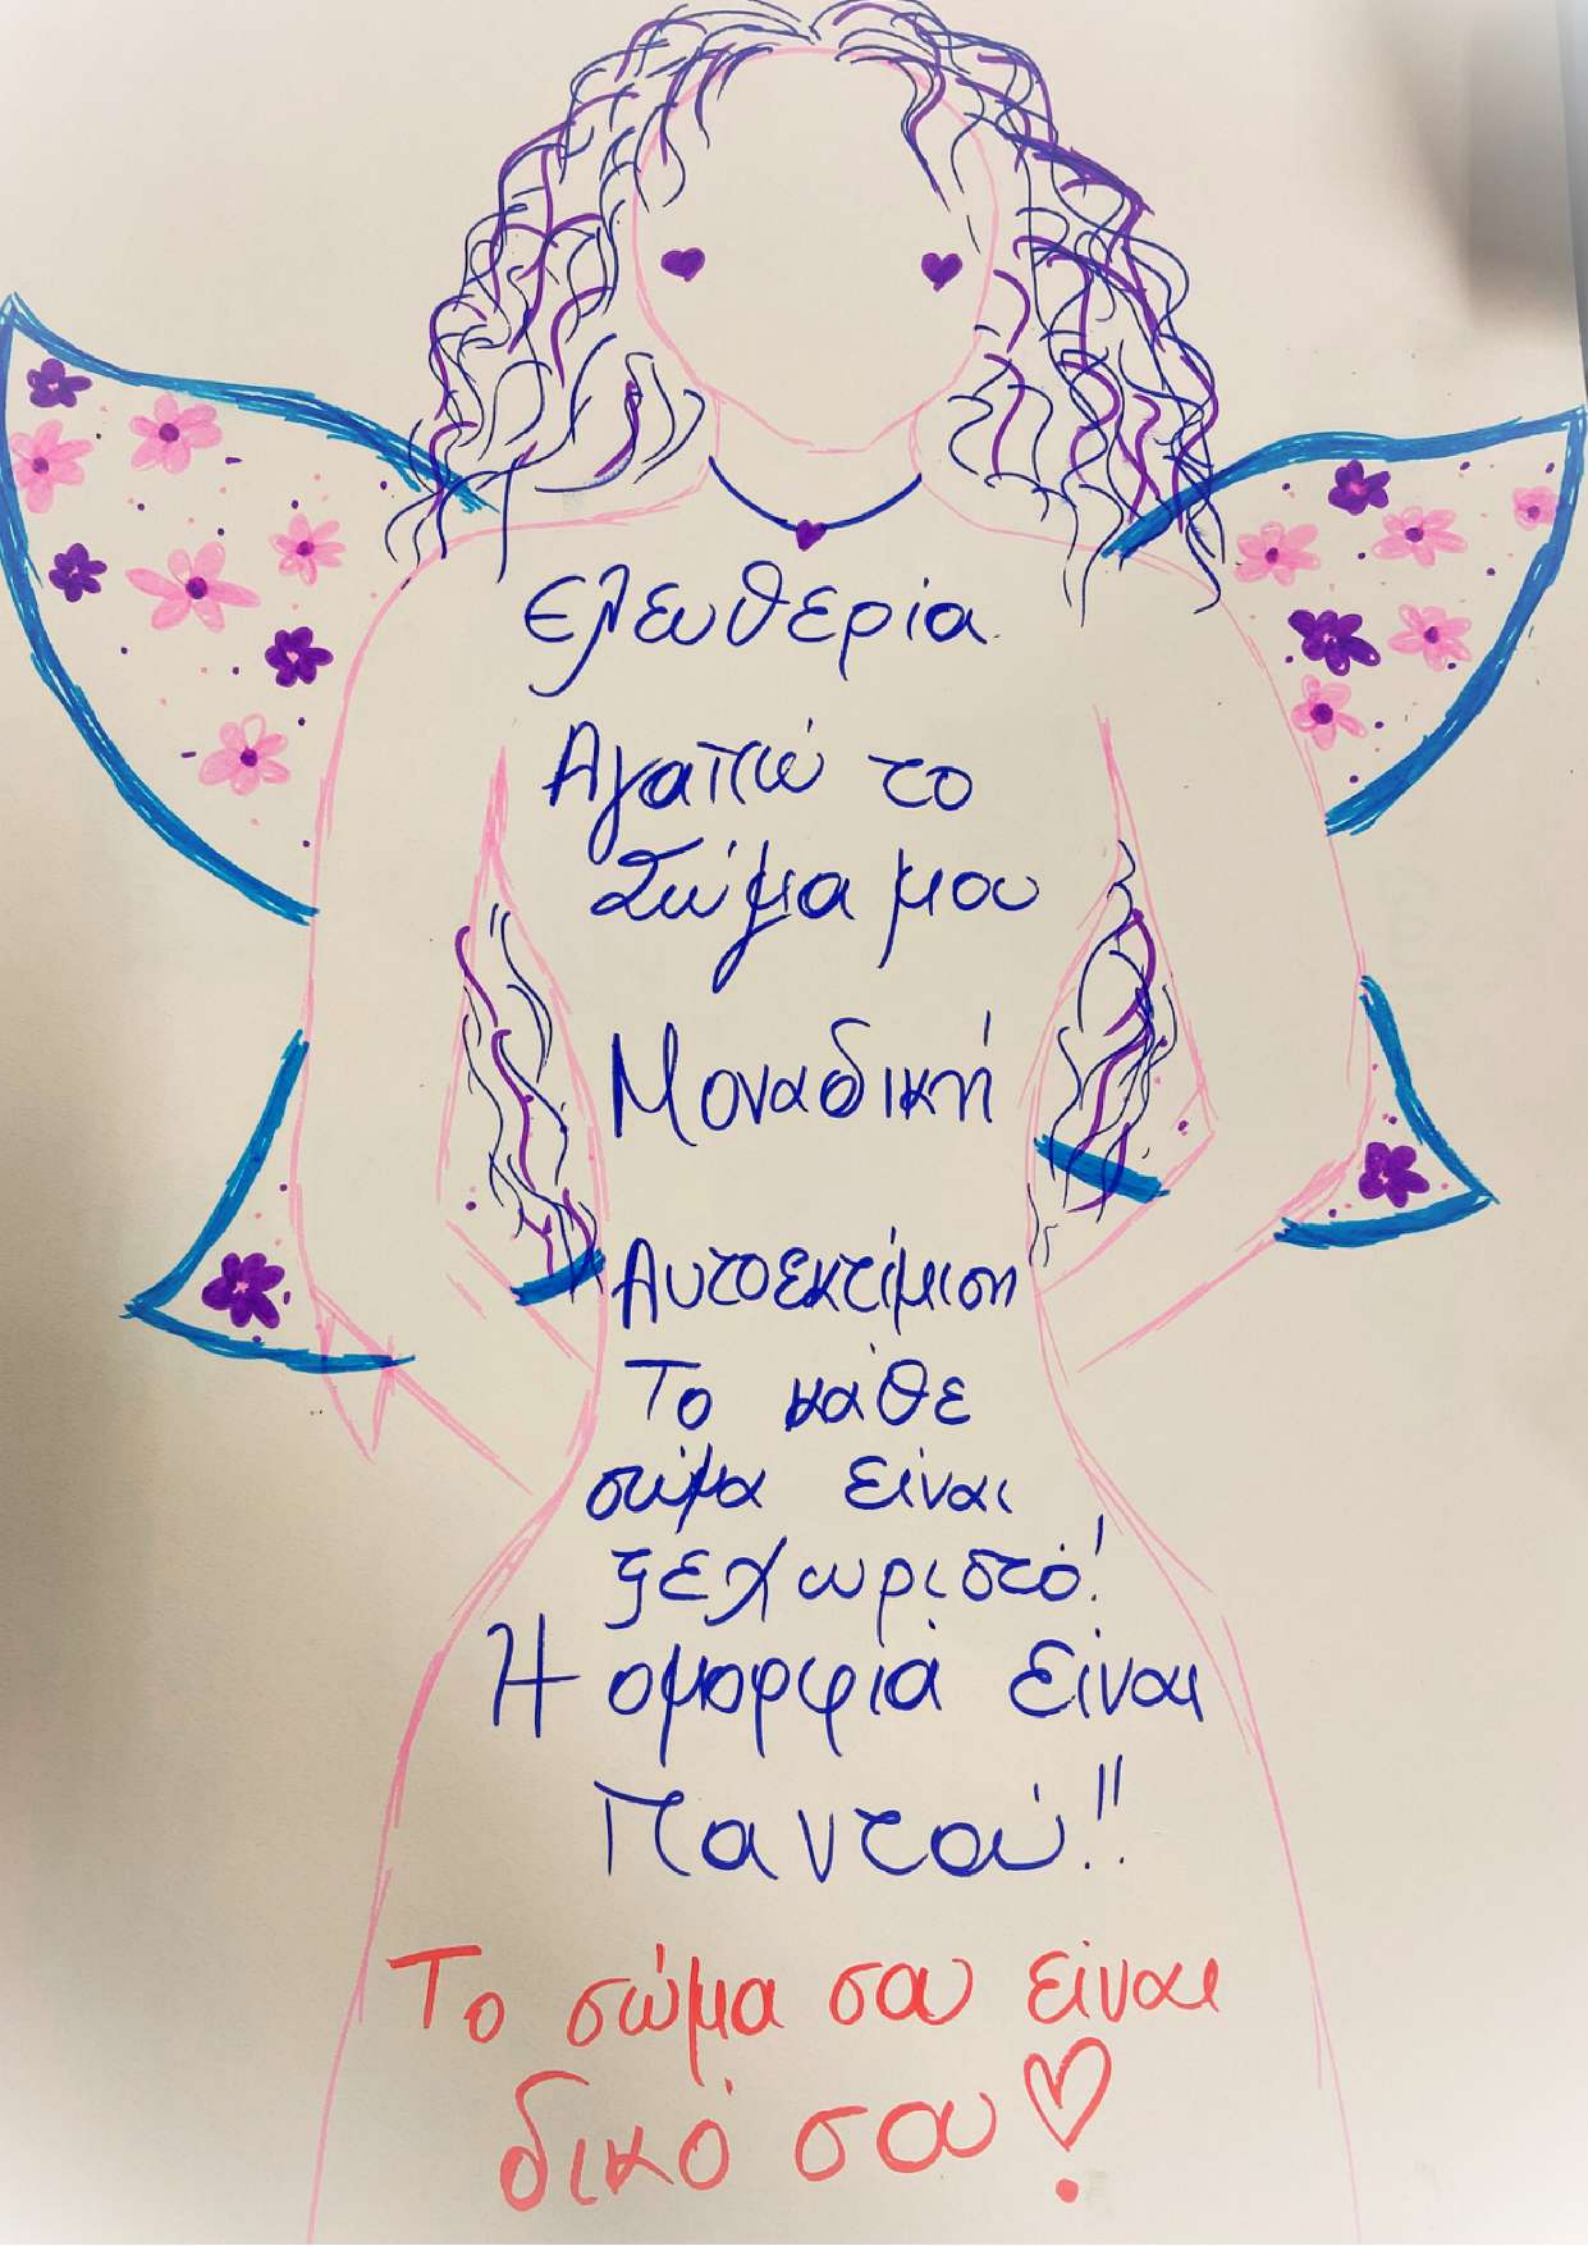 Ελευθερία
Αγαπώ το
Σώμα μου
Μοναδική
Αυτοεκτίμιση
Το κάθε
σώμα είναι
ξεχωριστό!
Η ομορφιά είναι
Παντού!!
Το σώμα σου είναι
δικό σου